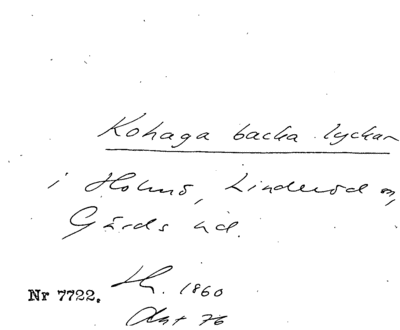 Kohaga backa lyckar
i Holmö, Linderöd sn,
Gärds hd.
Nr 7722. Th. 1860
Akt 76